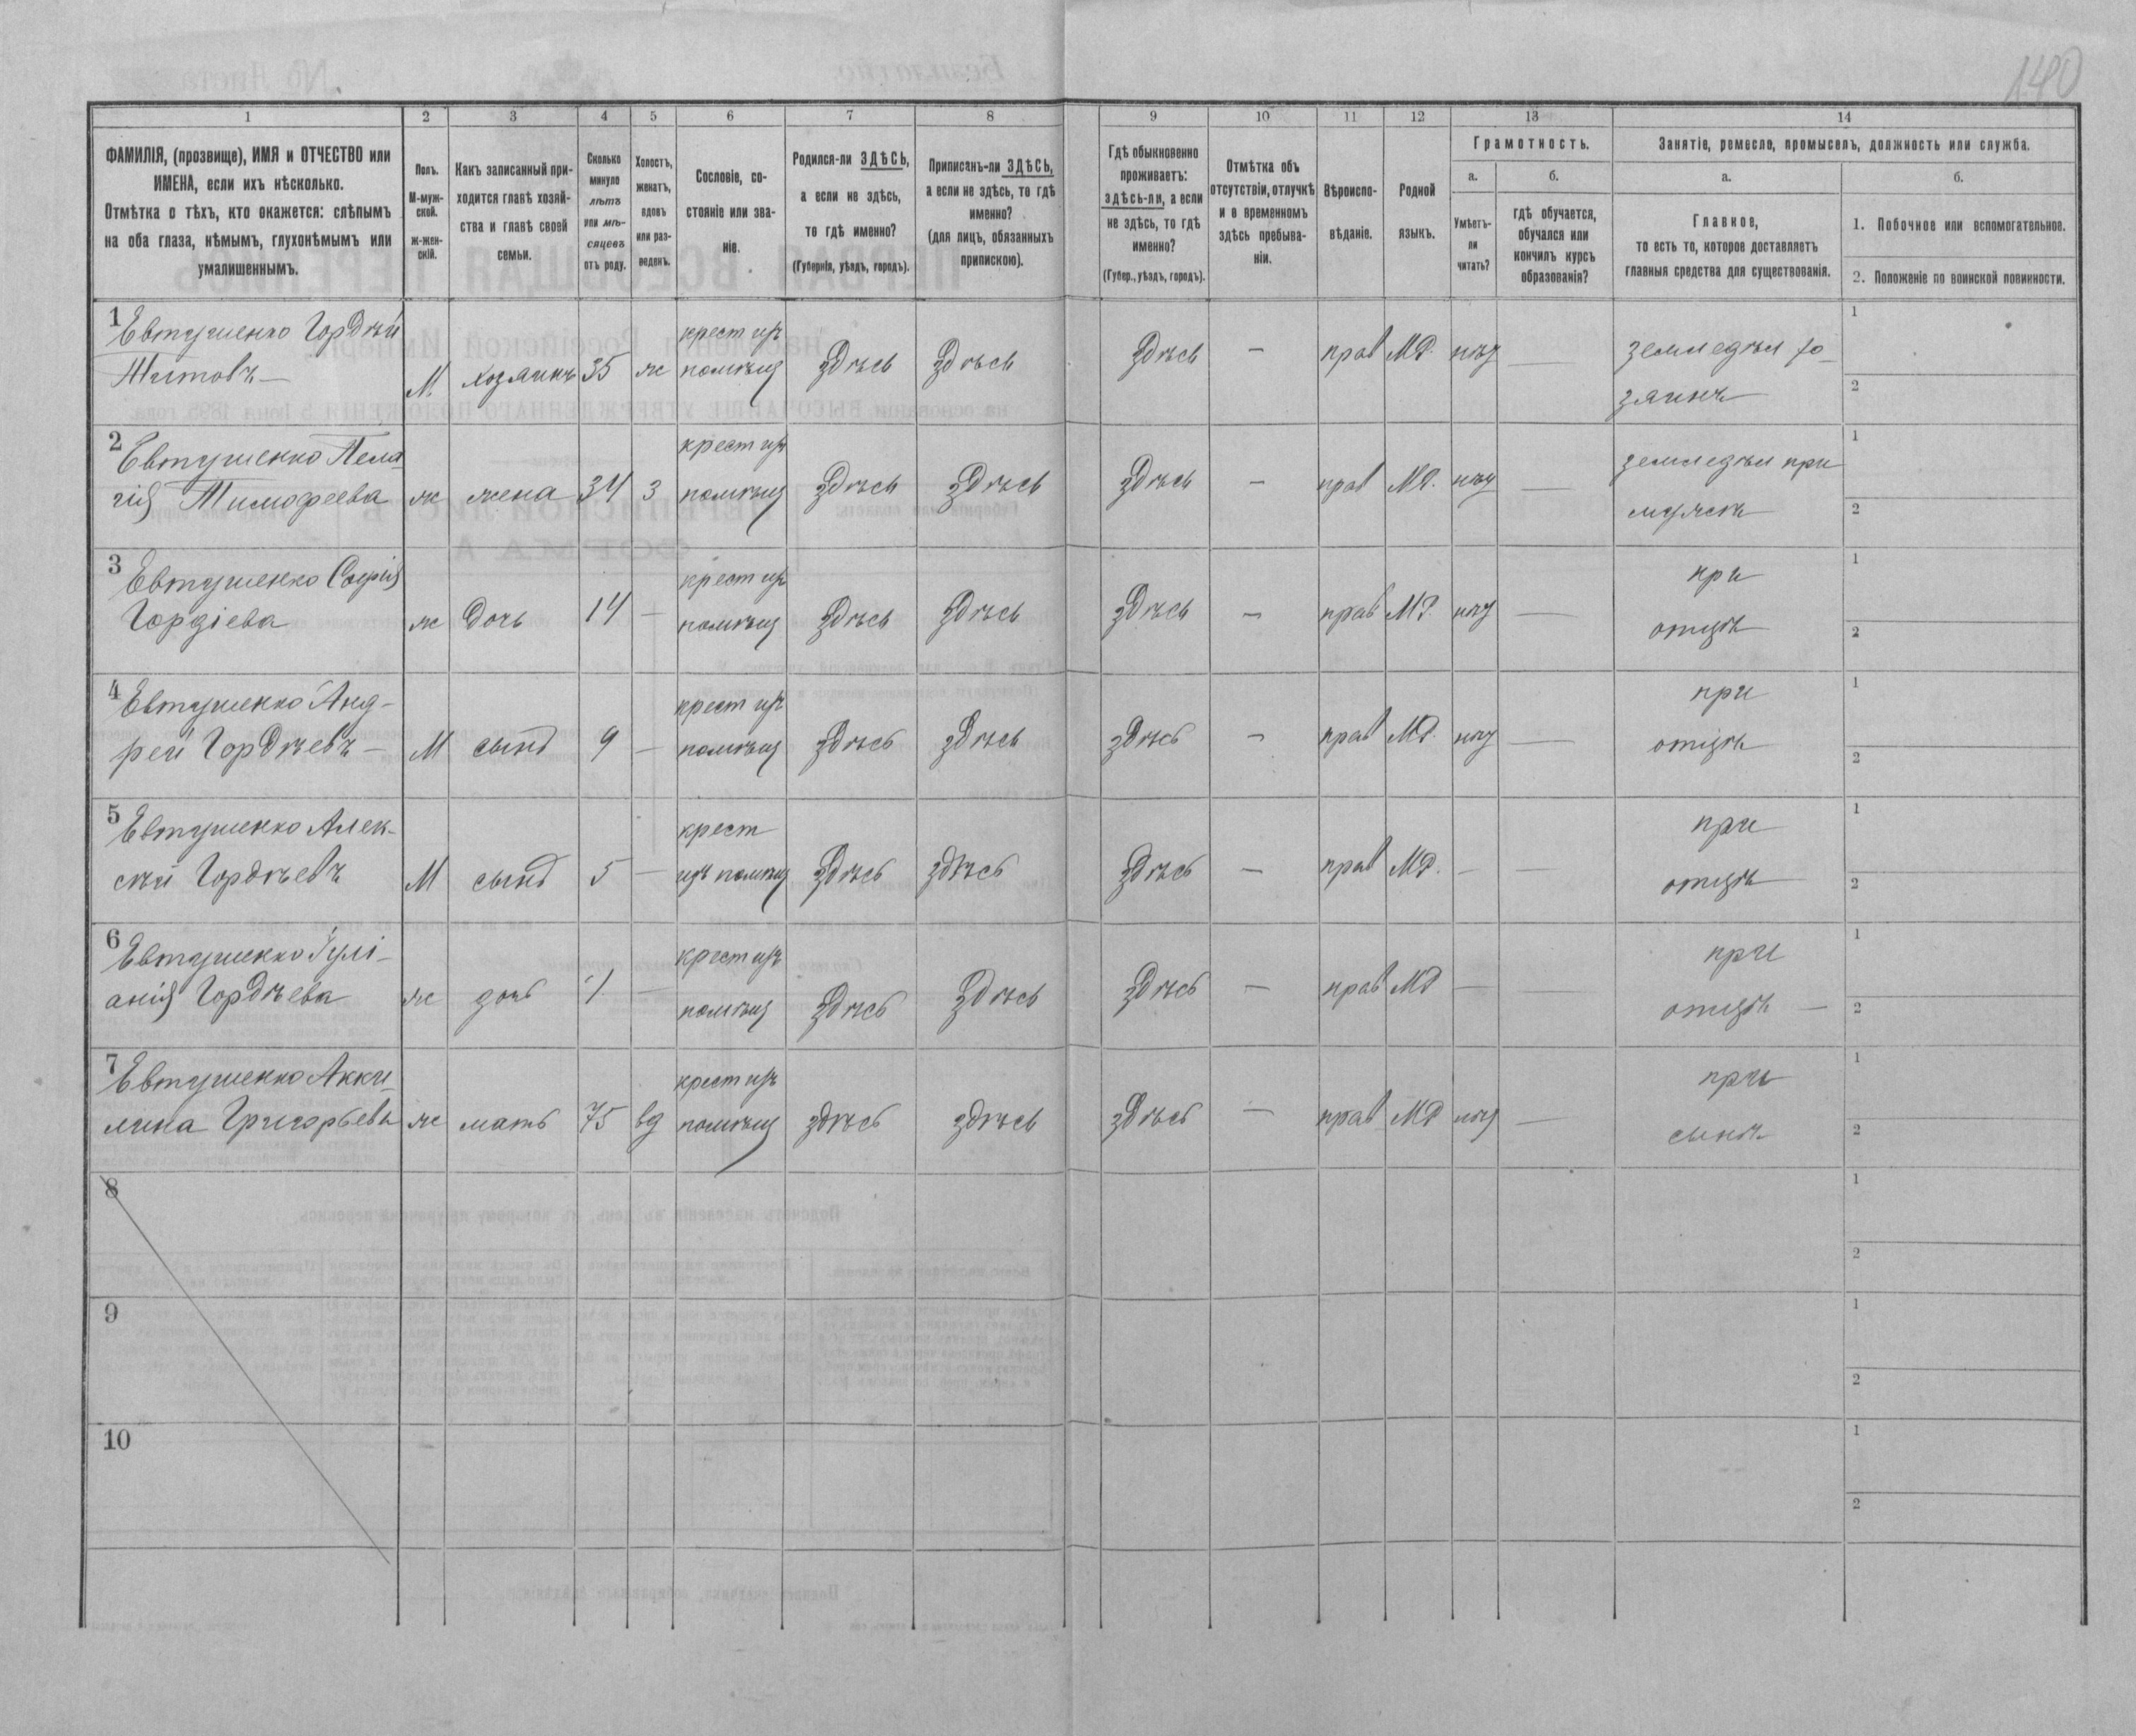 140
1 2 3 4 5 6 7 8 9 10 11 12 13 14
ФАМИЛІЯ, (прозвище), ИМЯ и ОТЧЕСТВО или
ИМЕНА, если ихъ нѣсколько.
Отмѣтка о тѣхъ, кто окажется: слѣпымъ
на оба глаза, нѣмымъ, глухонѣмымъ или
умалишеннымъ.
Полъ.
М-муж-
ской.
ж-жен-
скій.
Какъ записанный при-
ходится главѣ хозяй-
ства и главѣ своей
семьи.
Сколько
минуло
лѣтъ
или мѣ-
сяцевъ
отъ роду.
Холостъ,
женатъ,
вдовъ
или раз-
веденъ.
Сословіе, со-
стояніе или зва-
ніе.
Родился-ли ЗДѢСЬ,
а если не здѣсь,
то гдѣ именно?
(Губернія, уѣздъ, городъ).
Приписанъ-ли ЗДѢСЬ,
а если не здѣсь, то гдѣ
именно?
(для лицъ, обязанныхъ
припискою).
Гдѣ обыкновенно
проживаетъ:
здѣсь-ли, а если
не здѣсь, то гдѣ
именно?
(Губер., уѣздъ, городъ).
Отмѣтка объ
отсутствіи, отлучкѣ
и о временномъ
здѣсь пребыва-
ніи.
Вѣроиспо-
вѣданіе.
Родной
языкъ.
Грамотность.
а.
Умѣетъ-
ли
читать?
б.
гдѣ обучается,
обучался или
кончилъ курсъ
образованія?
Занятіе, ремесло, промыселъ, должность или служба.
а.
Главное,
то есть то, которое доставляетъ
главныя средства для существованія.
б.
1. Побочное или вспомогательное.
2. Положеніе по воинской повинности.
1 Евтушенко Гордѣй крест изъ 1
Титовъ — М. хозяинъ 35 ж помѣщ здѣсь здѣсь здѣсь — прав МР. нѣт — земледѣл хо-
зяинъ 2
2 Евтушенко Пела- крест изъ земледѣл при 1
гія Тимофеева ж жена 34 з помѣщ здѣсь здѣсь здѣсь — прав МР. нѣт — мужѣ 2
3 Евтушенко Софія крест изъ при 1
Гордіева ж дочь 14 — помѣщ здѣсь здѣсь здѣсь — прав МР. нѣт — отцѣ 2
4 Евтушенко Анд- крест изъ при 1
рей Гордѣевъ — М сынъ 9 — помѣщ здѣсь здѣсь здѣсь — прав МР. нѣт — отцѣ 2
5 Евтушенко Алек- крест при 1
сѣй Гордѣевъ М сынъ 5 — изъ помѣщ здѣсь здѣсь здѣсь — прав МР. — — отцѣ 2
6 Евтушенко Іулі- крест изъ при 1
анія Гордѣева ж дочь 1 — помѣщ здѣсь здѣсь здѣсь — прав МР — — отцѣ — 2
7 Евтушенко Акки- крест изъ при 1
лина Григорьева ж мать 75 вд помѣщ здѣсь здѣсь здѣсь — прав МР нѣт — сынѣ 2
8 1
2
9 1
2
10 1
2